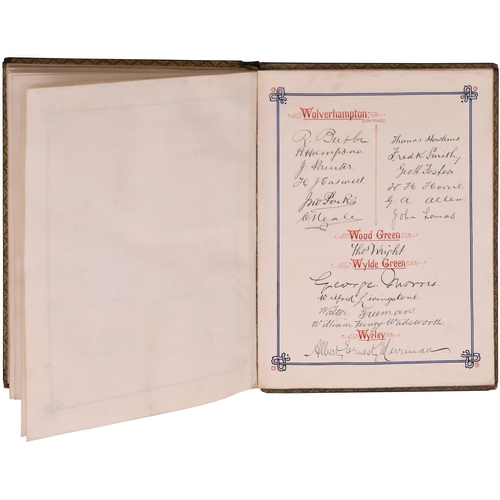 Wolverhampton
(CONTINUED)
R.
H Hampson
J
H J
Jno
C Neale
Thomas Hawkins
Fredk Smith
Geo H Foster
W H Horne
G. A Allen
John Lomas
Wood Green
Thos Wright
Wylde Green
George Morris
Wilfred Livingstone
Walter Freeman
William Henry Wadsworth
Wyrley
Albert Ernest Merriman